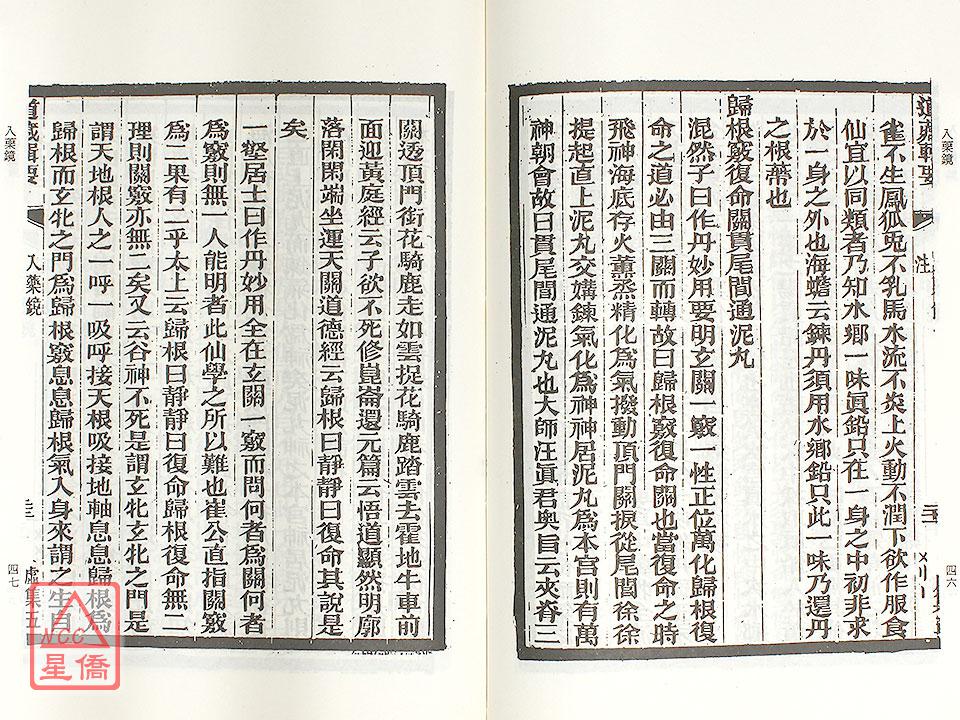 入藥鏡
四六
道藏輯要
注
雀不生鳳狐兎不乳馬水流不炎上火動不潤下欲作服食
仙宜以同類者乃知水鄉一味眞鉛只在一身之中初非求
於一身之外也海蟾云鍊丹須用水鄉鉛只此一味乃還丹
之根蔕也
歸根竅復命關貫尾閭通泥丸
混然子曰作丹妙用要明玄關一竅一性正位萬化歸根復
命之道必由三關而轉故曰歸根竅復命關也當復命之時
飛神海底存火薰蒸精化爲氣撥動頂門關捩從尾閭徐徐
提起直上泥丸交媾鍊氣化爲神神居泥丸爲本宫則有萬
神朝會故曰貫尾閭通泥丸也大師汪眞君奥旨云夾脊三
關透頂門銜花騎鹿走如雲捉花騎鹿踏雲去霍地牛車前
面迎黃庭經云子欲不死修崑崙還元篇云悟道顯然明廓
落閑閑端坐運天關道德經云歸根曰靜靜曰復命其說是
矣
一壑居士曰作丹妙用全在玄關一竅而問何者爲關何者
爲竅則無一人能明者此仙學之所以難也崔公直指關竅
爲二果有二乎太上云歸根曰靜靜曰復命歸根復命無二
理則關竅亦無二矣又云谷神不死是謂玄牝玄牝之門是
謂天地根人之一呼一吸呼接天根吸接地軸息息歸根爲
歸根而玄牝之門爲歸根竅息息歸根氣入身來謂之生自
道藏輯要
入藥鏡
虛集五
入藥鏡
四七
NCC
星僑